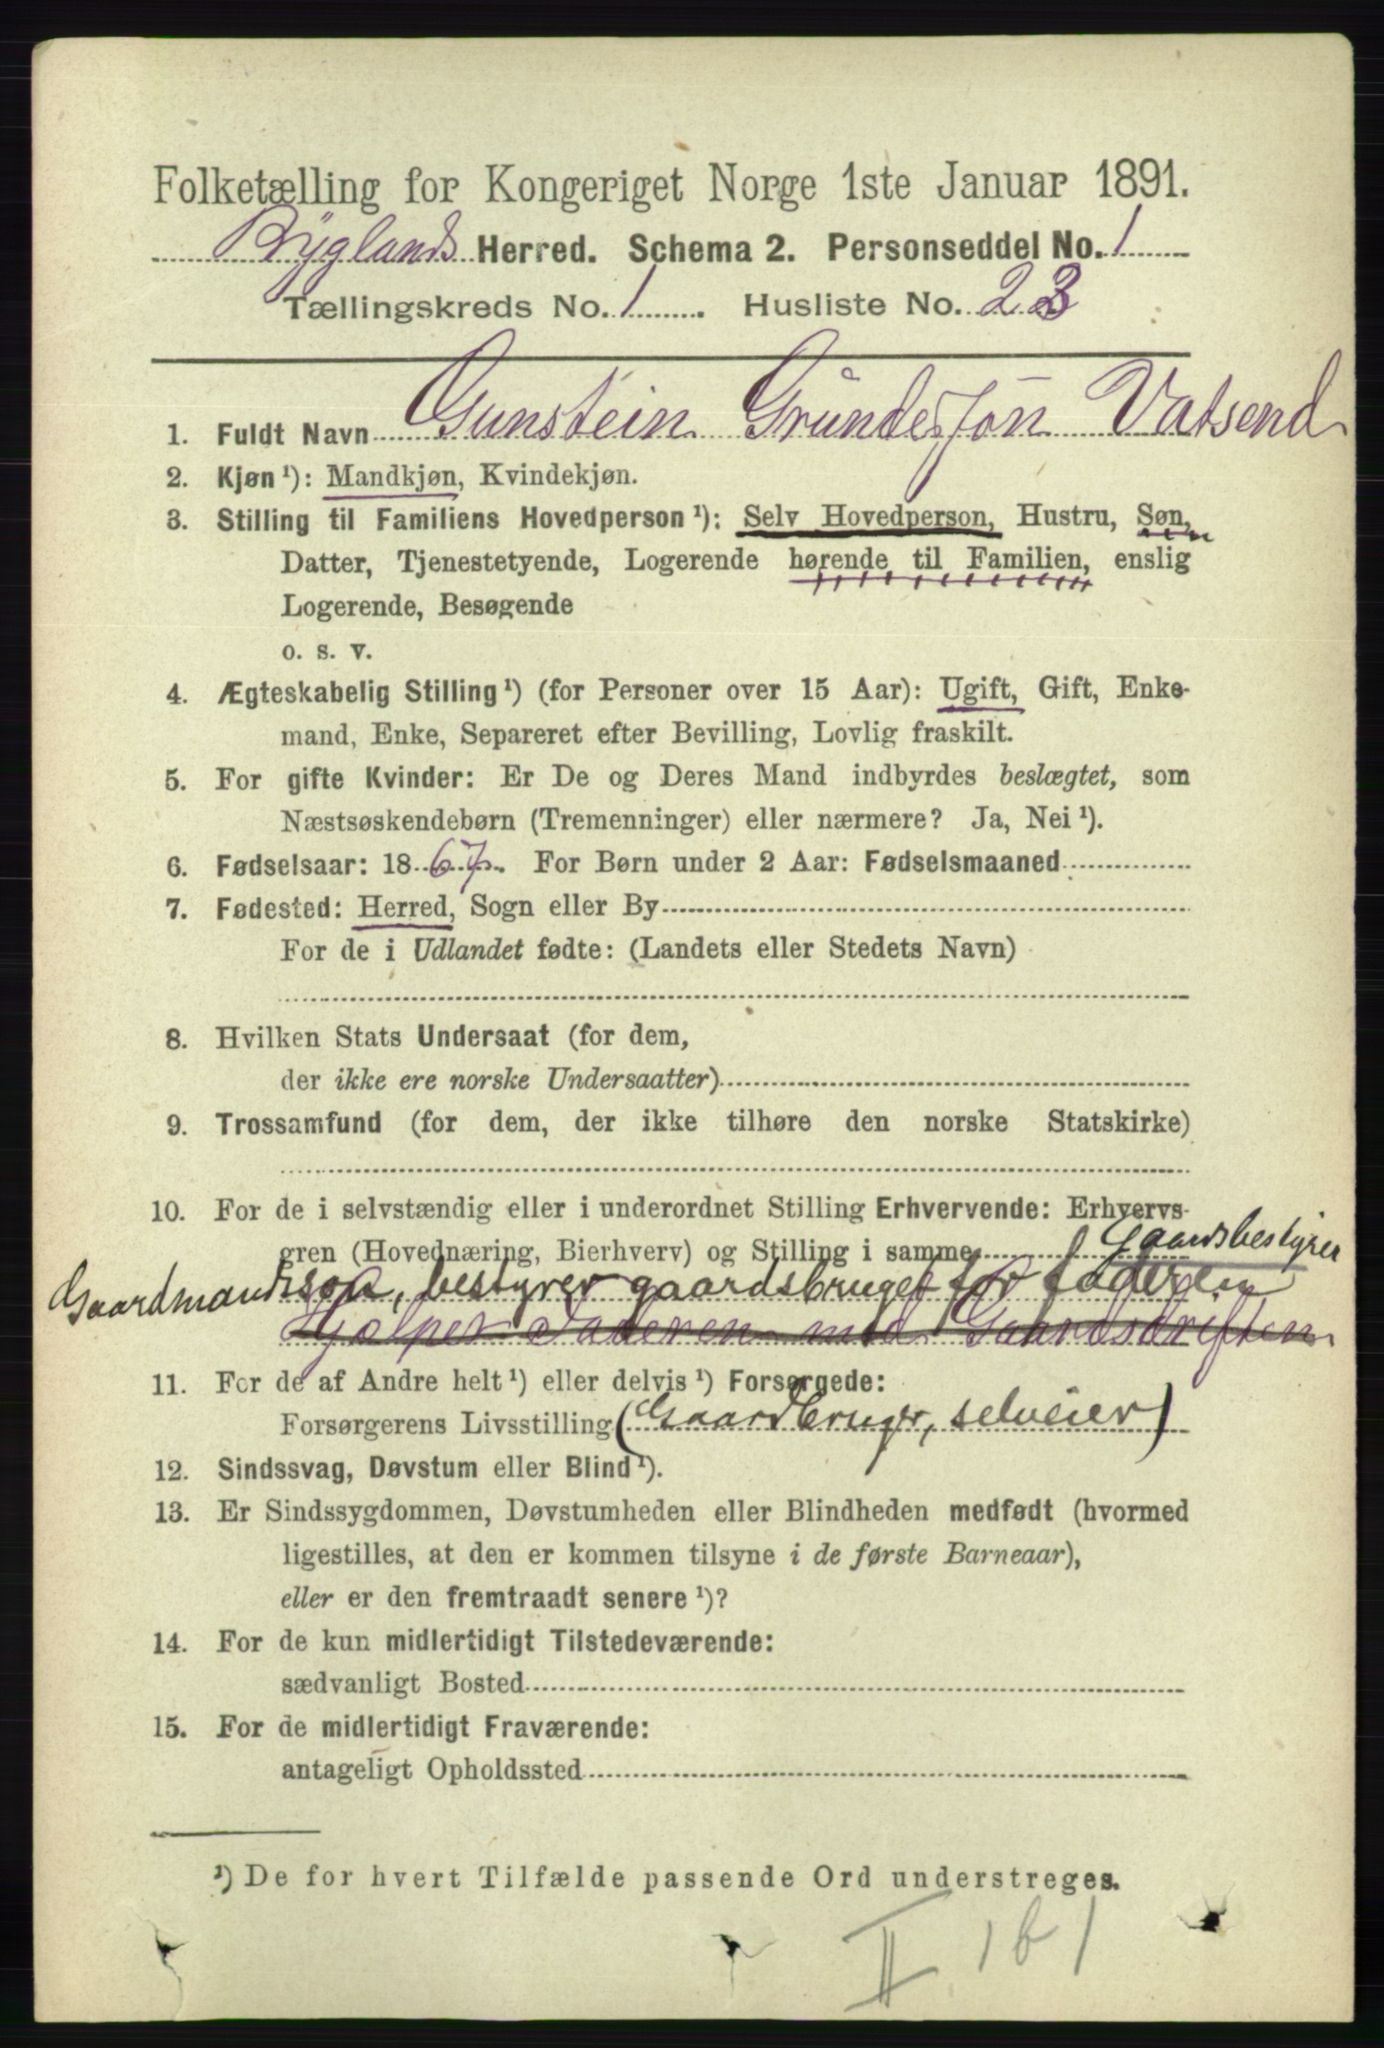 Folketælling for Kongeriget Norge 1ste Januar 1891.
Byglands Herred. Schema 2. Personseddel No. 1
Tællingskreds No. 1. Husliste No. 23
1. Fuldt Navn Gunstein Gundersøn Vatsend
2. Kjøn ¹): Mandkjøn, Kvindekjøn.
3. Stilling til Familiens Hovedperson ¹): Selv Hovedperson, Hustru, Søn,
Datter, Tjenestetyende, Logerende hørende til Familien, enslig
Logerende, Besøgende
o. s. v.
4. Ægteskabelig Stilling ¹) (for Personer over 15 Aar): Ugift, Gift, Enke-
mand, Enke, Separeret efter Bevilling, Lovlig fraskilt.
5. For gifte Kvinder: Er De og Deres Mand indbyrdes beslægtet, som
Næstsøskendebørn (Tremenninger) eller nærmere? Ja, Nei ¹).
6. Fødselsaar: 1867. For Børn under 2 Aar: Fødselsmaaned
7. Fødested: Herred, Sogn eller By
For de i Udlandet fødte: (Landets eller Stedets Navn)
8. Hvilken Stats Undersaat (for dem,
der ikke ere norske Undersaatter)
9. Trossamfund (for dem, der ikke tilhøre den norske Statskirke)
10. For de i selvstændig eller i underordnet Stilling Erhvervende: Erhvervs-
gren (Hovednæring, Bierhverv) og Stilling i samme Gaardsbestyrer
Gaardmandssøn, bestyrer gaardsbruget for faderen
Hjælper Faderen med Gaardsdriften
11. For de af Andre helt ¹) eller delvis ¹) Forsørgede:
Forsørgerens Livsstilling (Gaardbruger, selveier)
12. Sindssvag, Døvstum eller Blind ¹).
13. Er Sindssygdommen, Døvstumheden eller Blindheden medfødt (hvormed
ligestilles, at den er kommen tilsyne i de første Barneaar),
eller er den fremtraadt senere ¹)?
14. For de kun midlertidigt Tilstedeværende:
sædvanligt Bosted
15. For de midlertidigt Fraværende:
antageligt Opholdssted
¹) De for hvert Tilfælde passende Ord understreges.
II 1b1